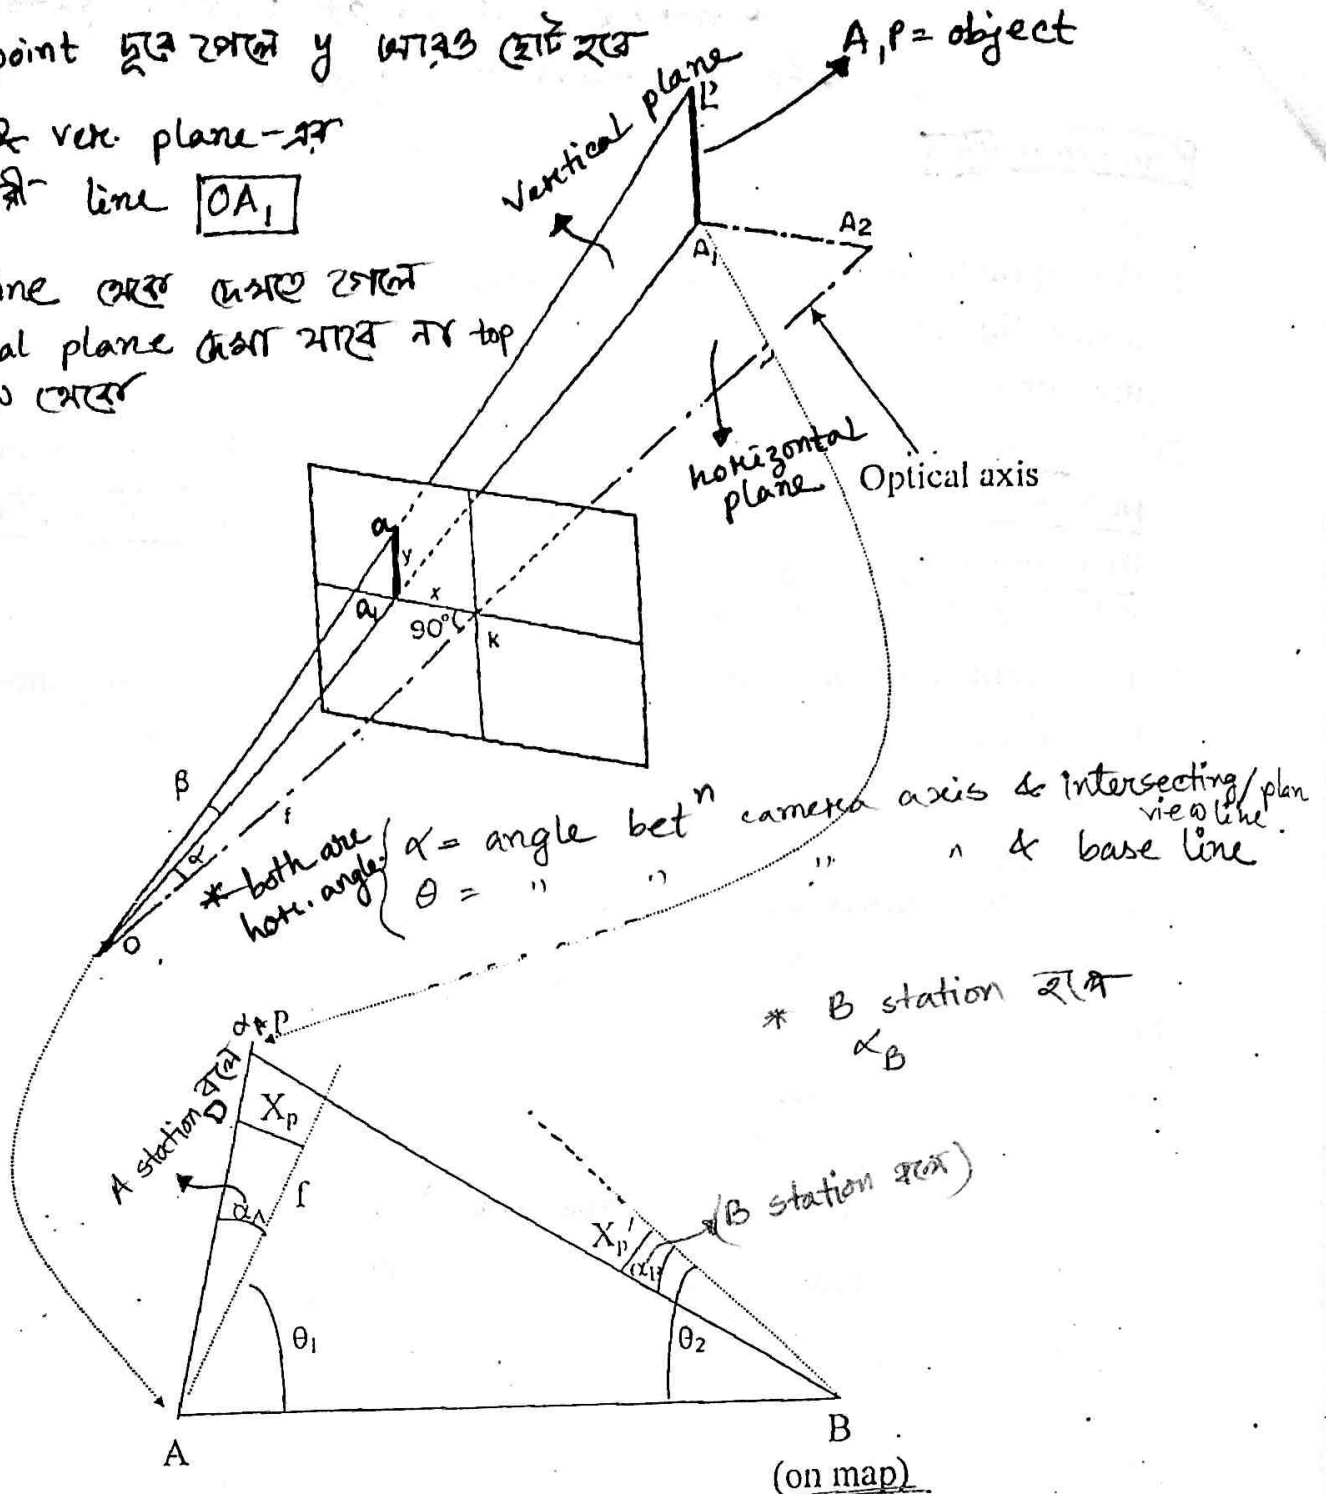 point দূরে গেলে y আরও ছোট হবে
A,P = object
& ver. plane-এর
line OA₁
থেকে দেখতে গেলে
al plane দেখা যাবে না top
থেকে
Vertical plane
P
A₁
A2
horizontal
plane
Optical axis
a
y
a₁
x
90°
k
β
α
f
O
* both are
hori. angle
α = angle betⁿ camera axis & intersecting/plan
view line
θ = " " " " & base line
* B station হলে
αB
P
A station হলে
D
Xp
f
αA
θ1
Xp'
(B station হলে)
θ2
A
B
(on map)